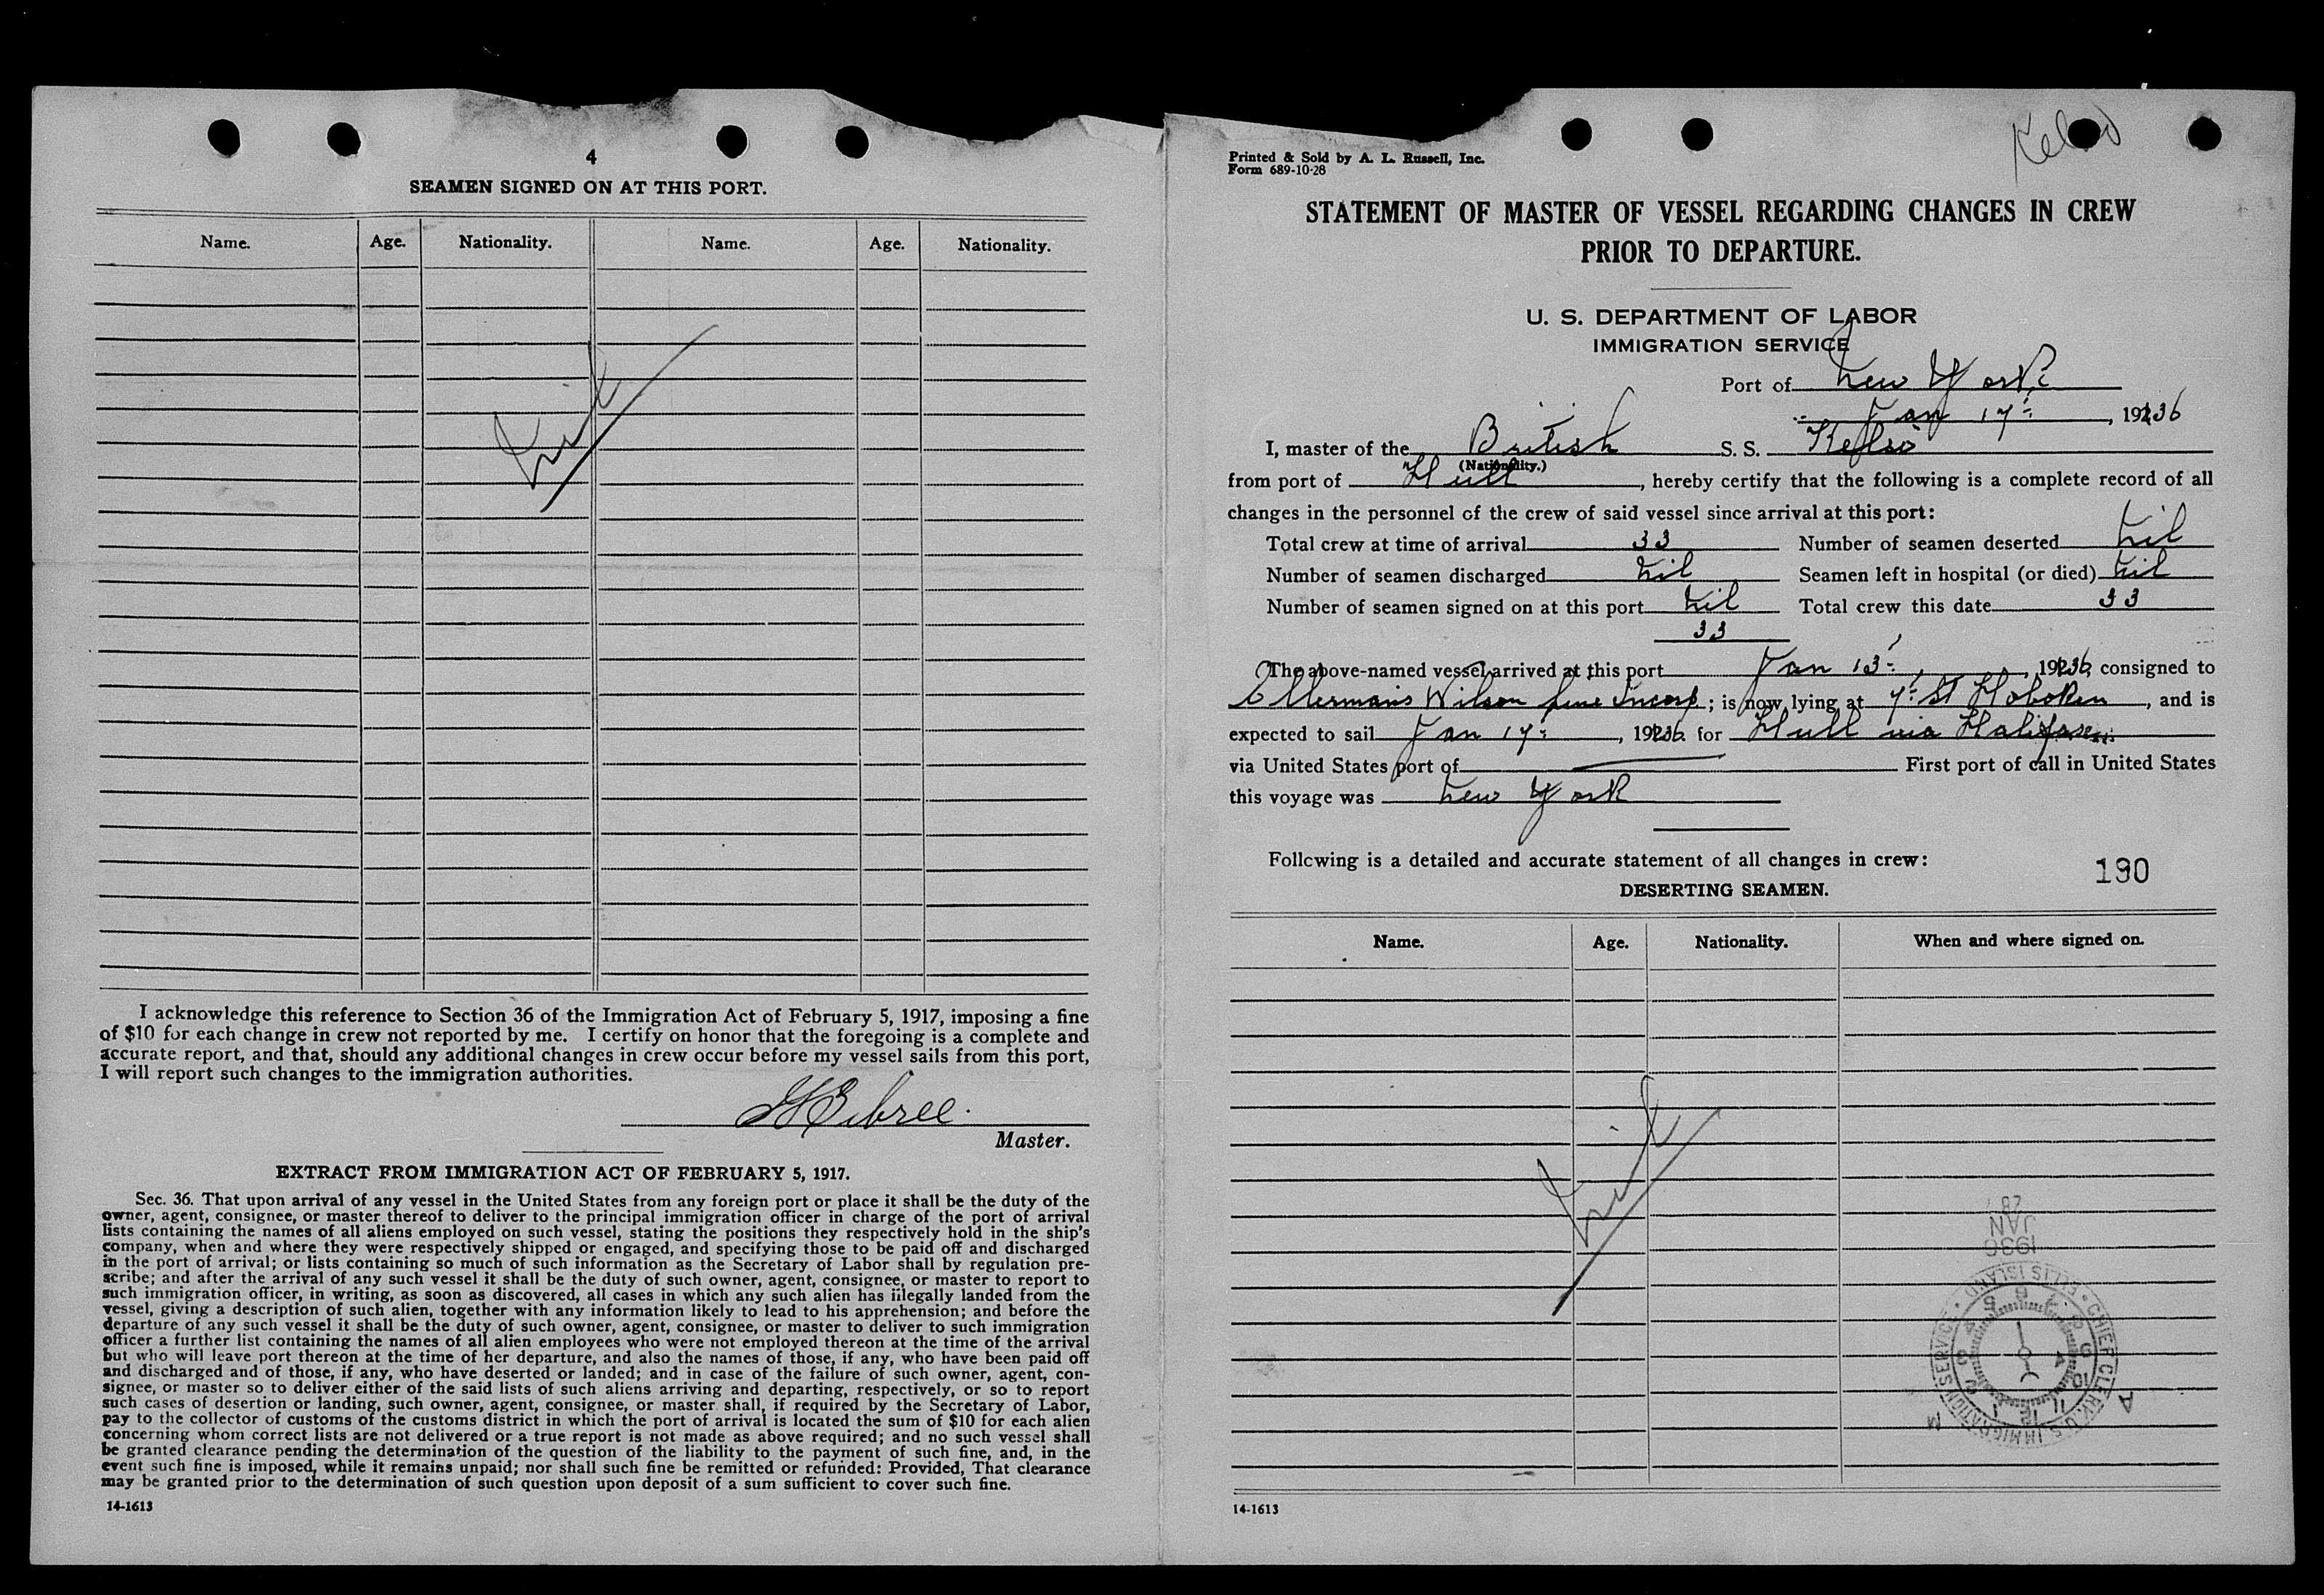 4
SEAMEN SIGNED ON AT THIS PORT.
Name. Age. Nationality. Name. Age. Nationality.
Nil
I acknowledge this reference to Section 36 of the Immigration Act of February 5, 1917, imposing a fine
of $10 for each change in crew not reported by me. I certify on honor that the foregoing is a complete and
accurate report, and that, should any additional changes in crew occur before my vessel sails from this port,
I will report such changes to the immigration authorities.
Master.
EXTRACT FROM IMMIGRATION ACT OF FEBRUARY 5, 1917.
Sec. 36. That upon arrival of any vessel in the United States from any foreign port or place it shall be the duty of the
owner, agent, consignee, or master thereof to deliver to the principal immigration officer in charge of the port of arrival
lists containing the names of all aliens employed on such vessel, stating the positions they respectively hold in the ship's
company, when and where they were respectively shipped or engaged, and specifying those to be paid off and discharged
in the port of arrival; or lists containing so much of such information as the Secretary of Labor shall by regulation pre-
scribe; and after the arrival of any such vessel it shall be the duty of such owner, agent, consignee, or master to report to
such immigration officer, in writing, as soon as discovered, all cases in which any such alien has illegally landed from the
vessel, giving a description of such alien, together with any information likely to lead to his apprehension; and before the
departure of any such vessel it shall be the duty of such owner, agent, consignee, or master to deliver to such immigration
officer a further list containing the names of all alien employees who were not employed thereon at the time of the arrival
but who will leave port thereon at the time of her departure, and also the names of those, if any, who have been paid off
and discharged and of those, if any, who have deserted or landed; and in case of the failure of such owner, agent, con-
signee, or master so to deliver either of the said lists of such aliens arriving and departing, respectively, or so to report
such cases of desertion or landing, such owner, agent, consignee, or master shall, if required by the Secretary of Labor,
pay to the collector of customs of the customs district in which the port of arrival is located the sum of $10 for each alien
concerning whom correct lists are not delivered or a true report is not made as above required; and no such vessel shall
be granted clearance pending the determination of the question of the liability to the payment of such fine, and, in the
event such fine is imposed, while it remains unpaid; nor shall such fine be remitted or refunded: Provided, That clearance
may be granted prior to the determination of such question upon deposit of a sum sufficient to cover such fine.
14-1613
Kelso
Printed & Sold by A. L. Russell, Inc.
Form 689-10-28
STATEMENT OF MASTER OF VESSEL REGARDING CHANGES IN CREW
PRIOR TO DEPARTURE.
U. S. DEPARTMENT OF LABOR
IMMIGRATION SERVICE
Port of New York
Jan 17th, 1936
I, master of the British S. S. Kelso
(Nationality.)
from port of Hull, hereby certify that the following is a complete record of all
changes in the personnel of the crew of said vessel since arrival at this port:
Total crew at time of arrival 33 Number of seamen deserted Nil
Number of seamen discharged Nil Seamen left in hospital (or died) Nil
Number of seamen signed on at this port Nil Total crew this date 33
33
The above-named vessel arrived at this port Jan 13th, 1936, consigned to
Ellermans Wilson Line Incorp; is now lying at 7th St Hoboken, and is
expected to sail Jan 17th, 1936 for Hull via Halifax
via United States port of First port of call in United States
this voyage was New York
Following is a detailed and accurate statement of all changes in crew:
190
DESERTING SEAMEN.
Name. Age. Nationality. When and where signed on.
Nil
28
JAN
1936
CHIEF CLERK, U.S. IMMIGRATION SERVICE • ELLIS ISLAND •
A M
14-1613